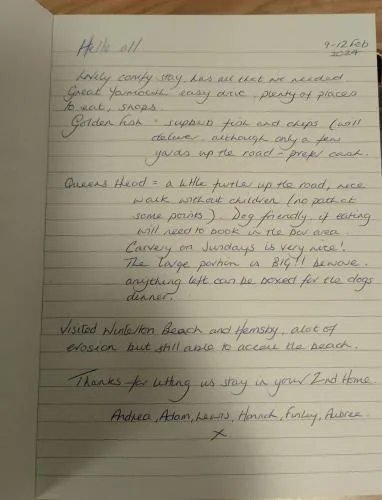 Hello all
9-12 Feb
2024
Lovely comfy stay, has all that we needed
Great Yarmouth easy drive, plenty of places
to eat, shops.
Golden Fish = superb fish and chips (will
deliver, although only a few
yards up the road - prefer cash.
Queens Head = a little further up the road, nice
walk without children (no path at
some points). Dog friendly, if eating
will need to book in the bar area.
Carvery on Sundays is very nice!
The large portion is BIG!! beware.
anything left can be boxed for the dogs
dinner.
Visited Winterton Beach and Hemsby, alot of
erosion but still able to access the beach.
Thanks for letting us stay in your 2nd Home.
Andrea, Adam, Lewis, Hannah, Finley, Aubree.
X